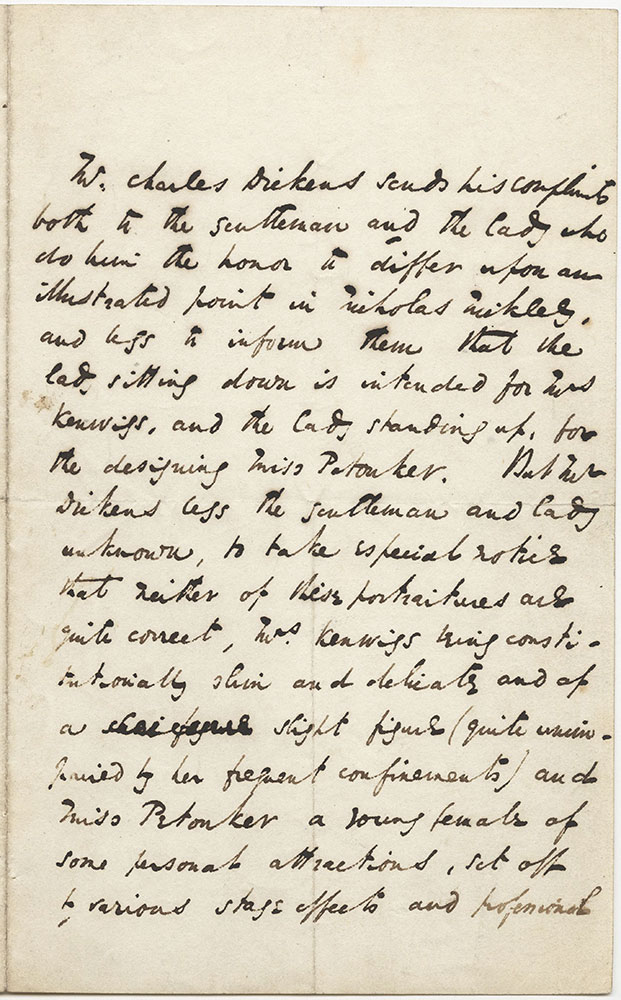 Mr. Charles Dickens sends his compliments
both to the gentleman and the lady who
do him the honor to differ upon an
illustrated point in Nicholas Nickleby,
and begs to inform them that the
lady sitting down is intended for Mrs
Kenwigs, and the lady standing up, for
the designing Miss Petowker. But Mr
Dickens begs the gentleman and lady
unknown, to take especial notice
that neither of these portraitures are
quite correct, Mrs. Kenwigs being consti-
tutionally slim and delicate and of
a slight figure (quite unim-
paired by her frequent confinements) and
Miss Petowker a young female of
some personal attractions, set off
by various stage effects and professional